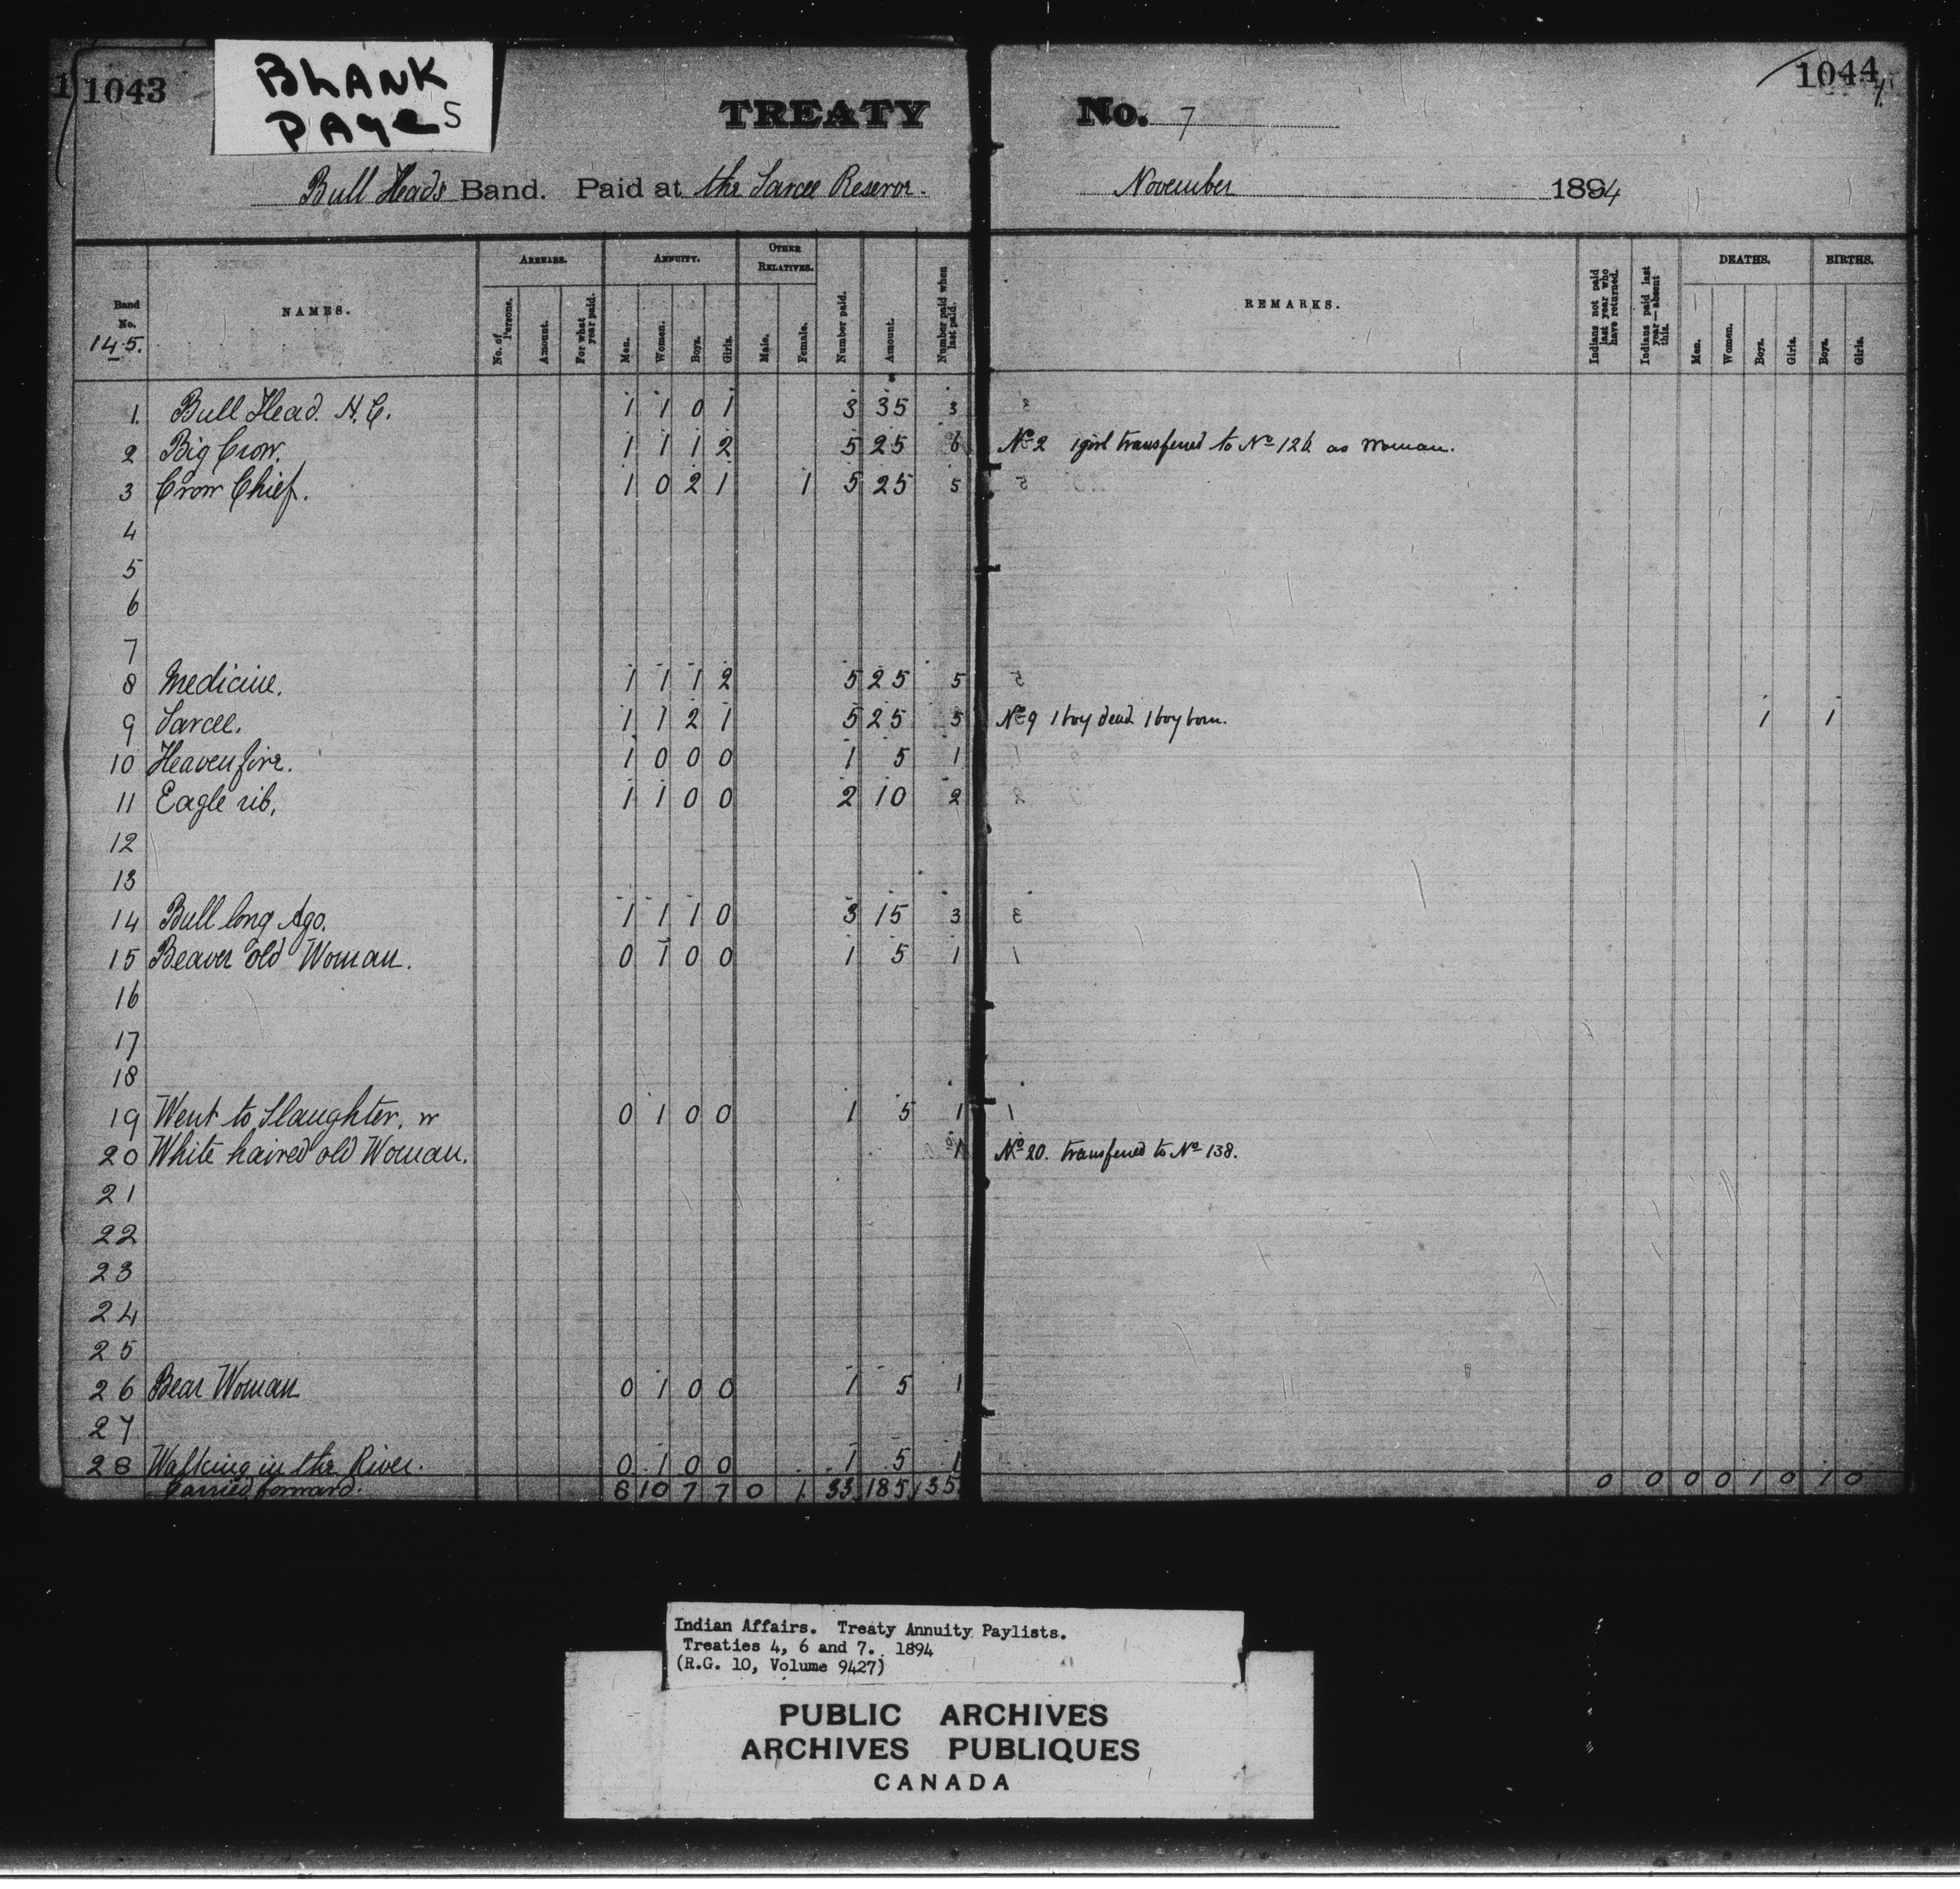 1043
BLANK
PAgeS
1044
TREATY No. 7
Bull Heads Band. Paid at the Sarcee Reserve. November 1894
Band No. 145.
NAMES.
ARREARS. No. of Persons. Amount. For what year paid.
ANNUITY. Men. Women. Boys. Girls.
OTHER RELATIVES. Male. Female.
Number paid. Amount. Number paid when last paid.
REMARKS.
Indians not paid last year who have returned. Indians paid last year—absent this.
DEATHS. Men. Women. Boys. Girls.
BIRTHS. Boys. Girls.
1. Bull Head. H.C. 1 1 0 1 3 35 3
2 Big Crow. 1 1 1 2 5 25 6 No 2 1 girl transferred to No 126 as Woman.
3 Crow Chief. 1 0 2 1 1 5 25 5
4
5
6
7
8 Medicine. 1 1 1 2 5 25 5
9 Sarcee. 1 1 2 1 5 25 5 No 9 1 boy dead 1 boy born. 1 1
10 Heavenfire. 1 0 0 0 1 5 1
11 Eagle rib, 1 1 0 0 2 10 2
12
13
14 Bull long Ago. 1 1 1 0 3 15 3
15 Beaver old Woman. 0 1 0 0 1 5 1
16
17
18
19 Went to Slaughter. w 0 1 0 0 1 5 1
20 White haired old Woman. 1 No 20. transferred to No 138.
21
22
23
24
25
26 Bear Woman 0 1 0 0 1 5 1
27
28 Walking in the River. 0 1 0 0 1 5 1
Carried forward. 8 10 7 7 0 1 33 185 35 0 0 0 0 1 0 1 0
Indian Affairs. Treaty Annuity Paylists.
Treaties 4, 6 and 7. 1894
(R.G. 10, Volume 9427)
PUBLIC ARCHIVES
ARCHIVES PUBLIQUES
CANADA